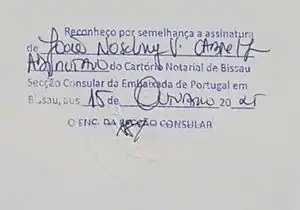 Reconheço por semelhança a assinatura
de João
do Cartório Notarial de Bissau
Secção Consular da Embaixada de Portugal em
Bissau, aos 15 de 20 25
O ENC. DA SECÇÃO CONSULAR